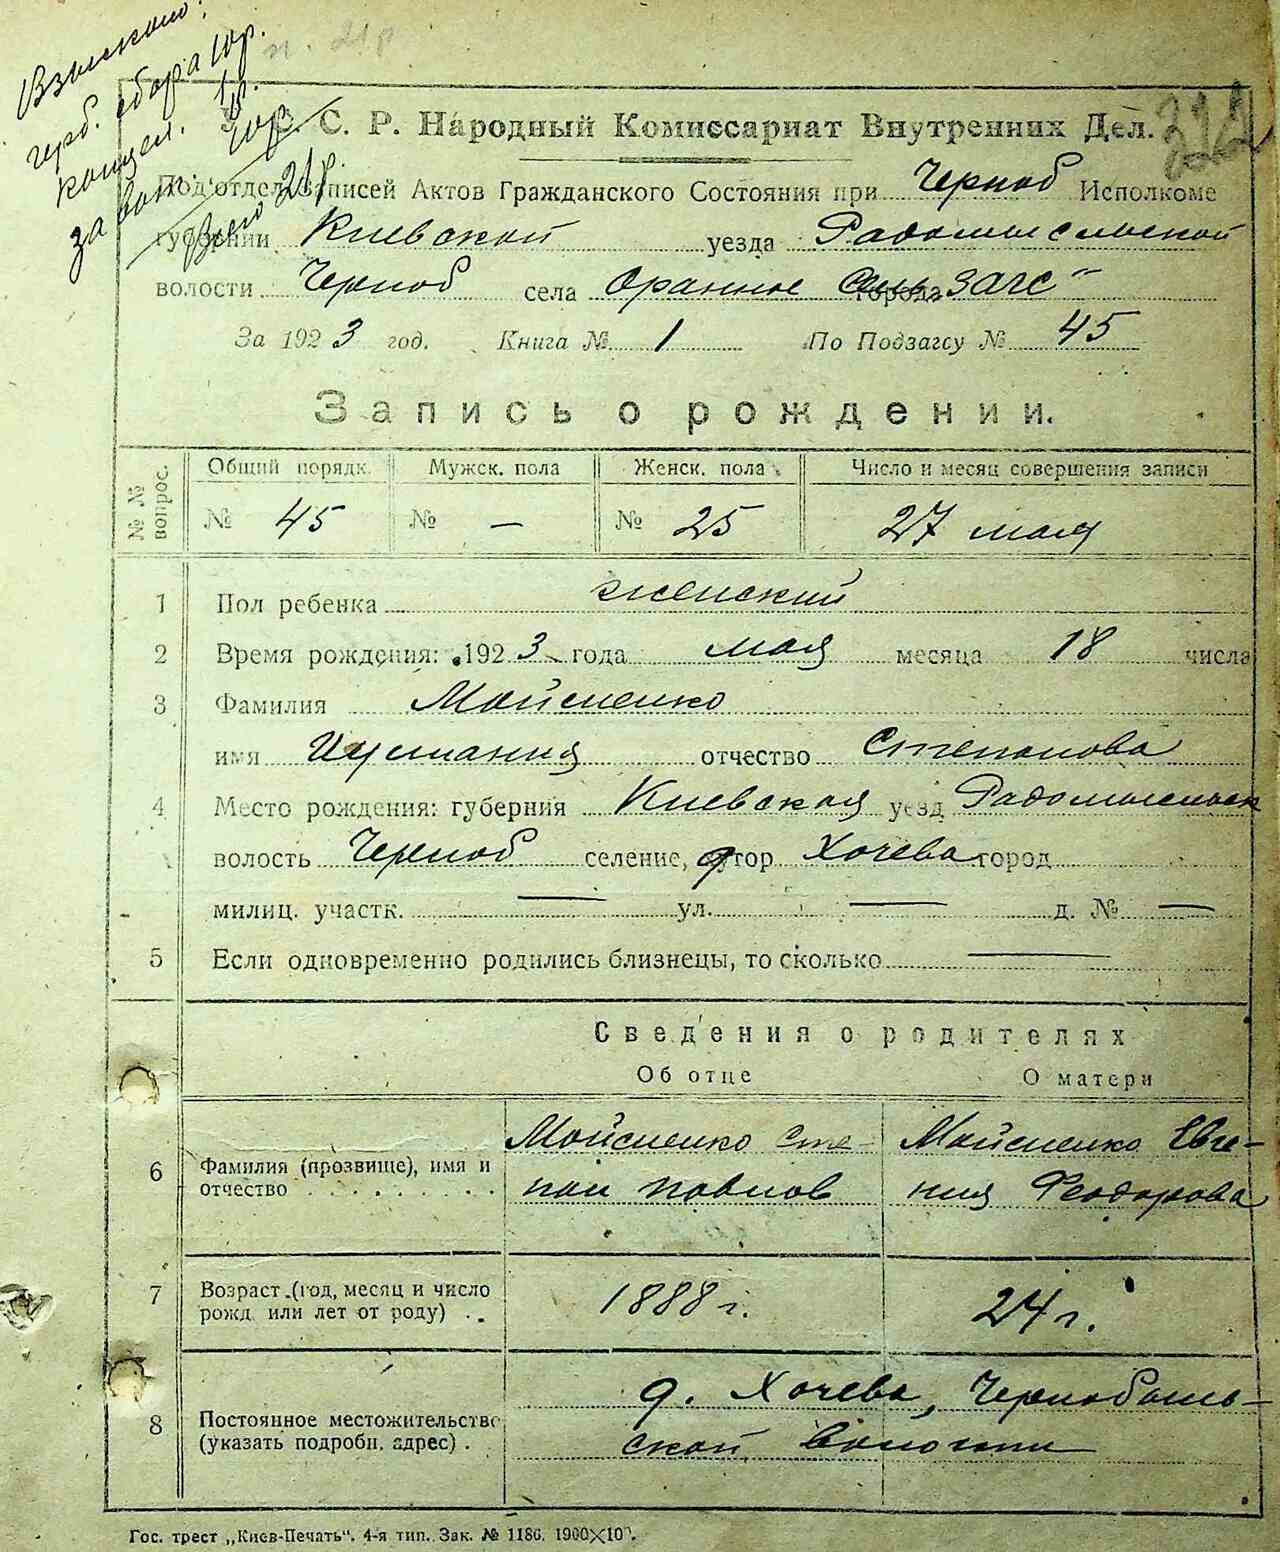 Взыскано:
герб. сбора 10р.
канцел. 1р.
за бланк 10р.
Всего 21р.
п. 21р
322
У. С. С. Р. Народный Комиссариат Внутренних Дел.
Под'отдел Записей Актов Гражданского Состояния при Черноб Исполкоме
губернии Киевской уезда Радомысльской
волости Черноб села Оранное города Сель ЗАГС"
За 1923 год. Книга № 1 По Подзагсу № 45
Запись о рождении.
№ № вопрос. Общий порядк. Мужск. пола Женск. пола Число и месяц совершения записи
№ 45 № — № 25 27 мая
1 Пол ребенка женский
2 Время рождения: 1923 года мая месяца 18 числа
3 Фамилия Мойсиенко
имя отчество Степанова
4 Место рождения: губерния Киевская уезд Радомысльск
волость Черноб селение, хутор д Хочева город
милиц. участк. — ул. — д. № —
5 Если одновременно родились близнецы, то сколько —
Сведения о родителях
Об отце О матери
Мойсиенко Сте- Мойсиенко Евге-
6 Фамилия (прозвище), имя и
отчество
пан Павлов ния Феодорова
7 Возраст (год, месяц и число
рожд. или лет от роду) 1888 г. 24 г.
д. Хочева, Чернобыль-
8 Постоянное местожительство
(указать подробн. адрес)
ской волости
Гос. трест „Киев-Печать". 4-я тип. Зак. № 1186. 1900×100.